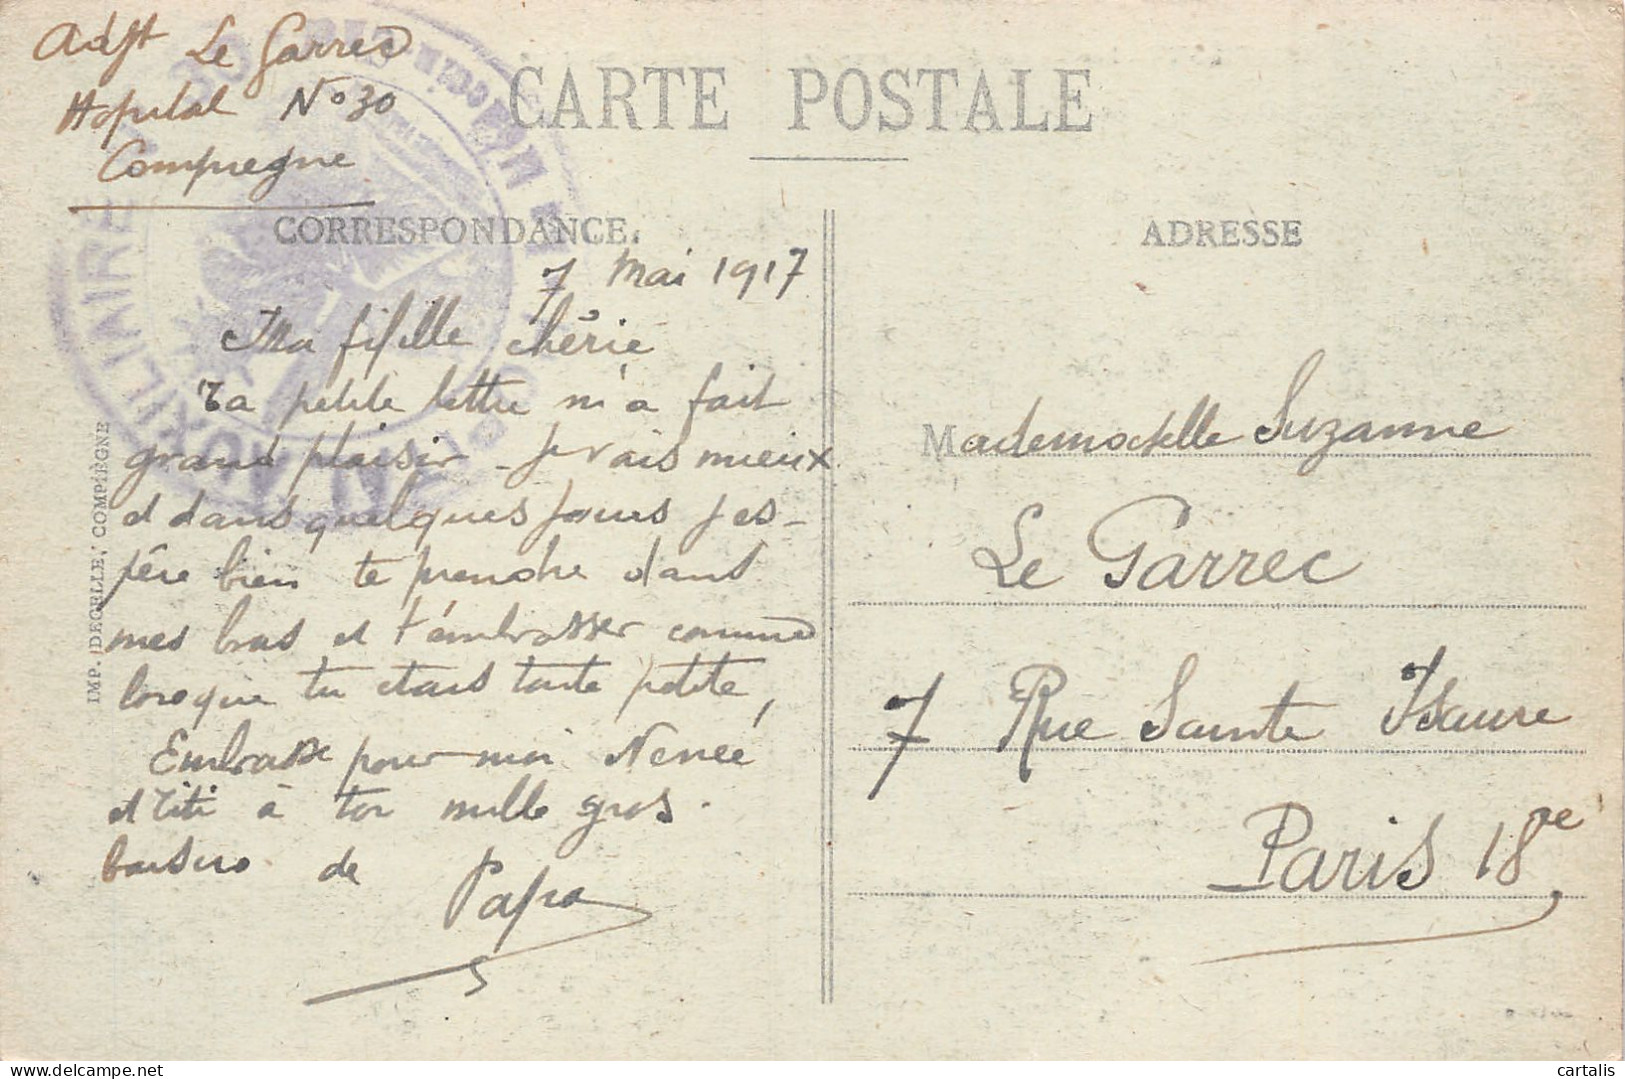 Adjt Le Garrec
Hopital No 30
Compiegne
CARTE POSTALE
CORRESPONDANCE.
7 Mai 1917
Ma fifille chérie
Ta petite lettre m'a fait
grand plaisir - je vais mieux
et dans quelques jours j'es-
père bien te prendre dans
mes bras et t'embrasser comme
lorsque tu étais toute petite,
Embrasse pour moi Nénée
et Titi à toi mille gros
baisers de
Papa
IMP. DECELLE, COMPIÈGNE
AUXILIAIRE
ADRESSE
Mademoiselle Suzanne
Le Garrec
7 Rue Sainte Isaure
Paris 18e
cartalis